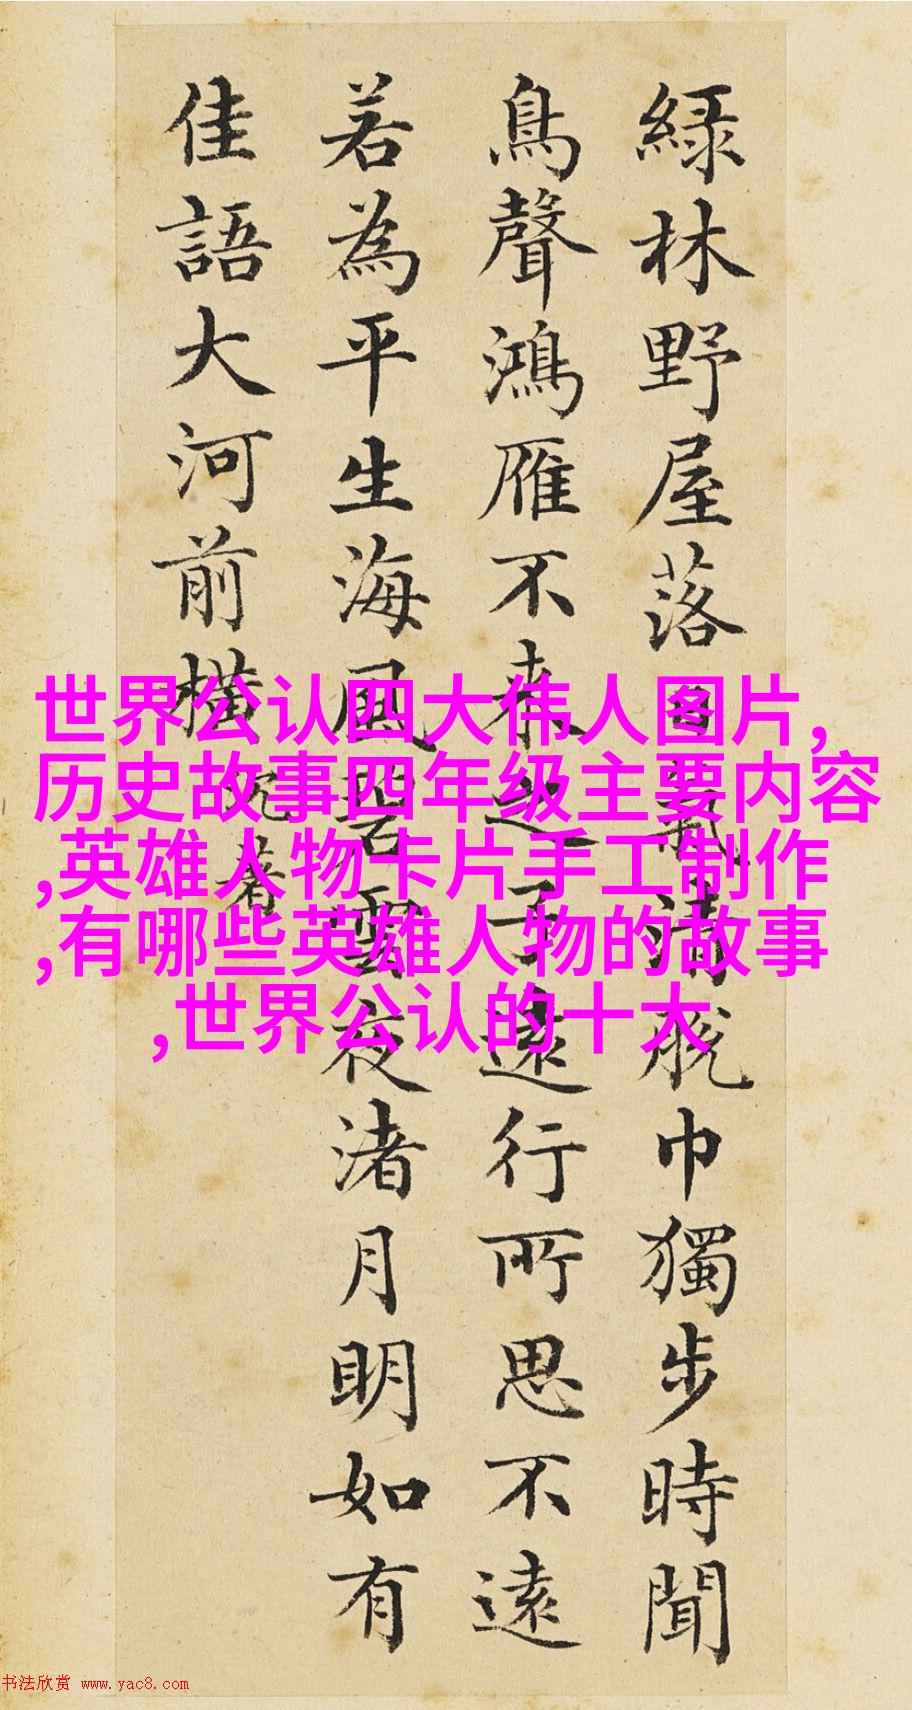 綠林野屋落氣清脱巾獨步時聞
鳥聲鴻雁不来之子遠行所思不遠
若為平生海風碧雲夜渚月明如有
佳語大河前橫
沈著
世界公认四大伟人图片,
历史故事四年级主要内容
,英雄人物卡片手工制作
,有哪些英雄人物的故事
,世界公认的十大
书法欣赏 www.yac8.com